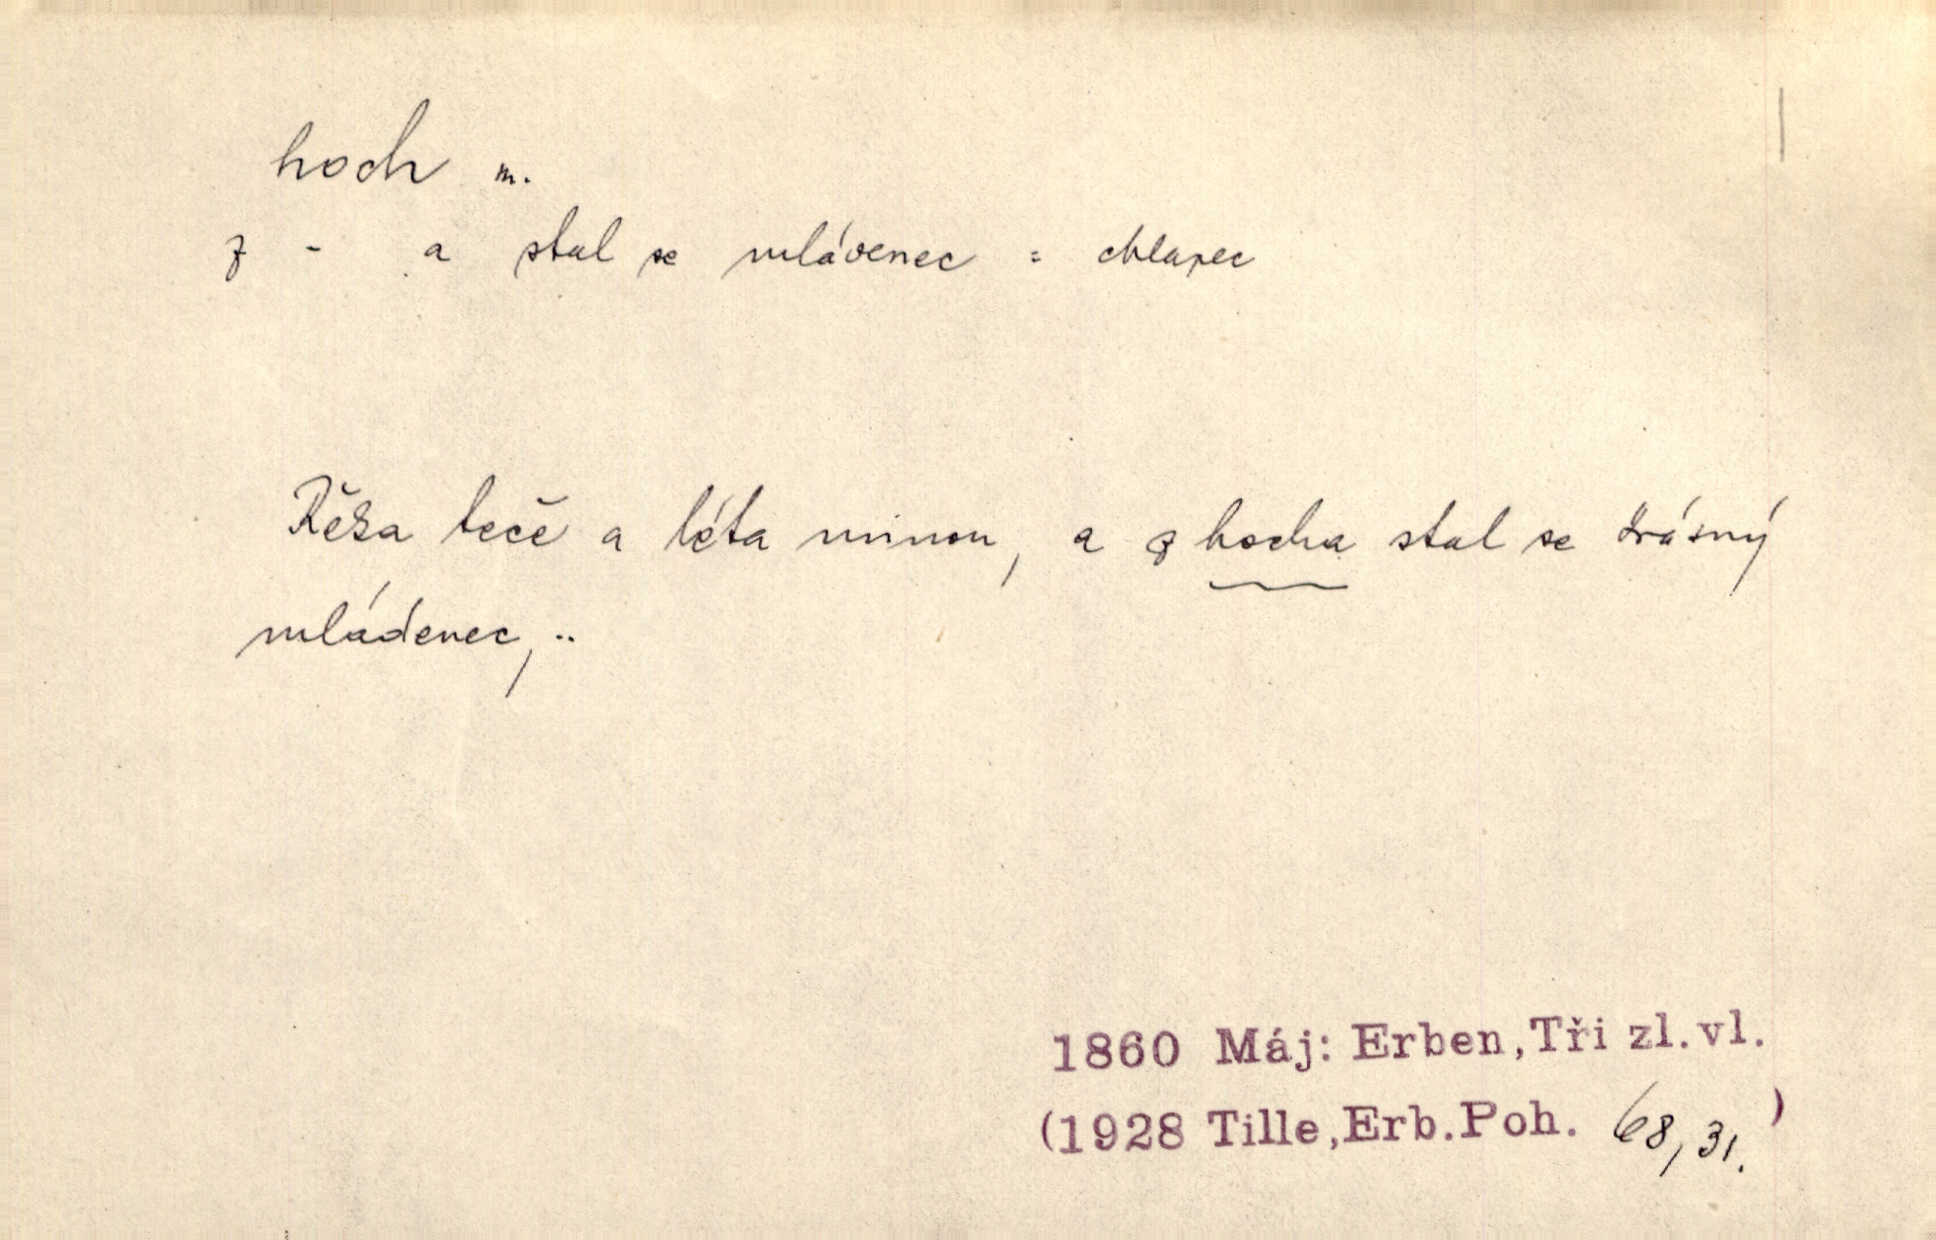 hoch m.
z - a stal se mládenec = chlapec
Řeka teče a léta minou, a z hocha stal se krásný
mládenec, ..
1860 Máj: Erben, Tři zl. vl.
(1928 Tille, Erb. Poh. 68, 31.)